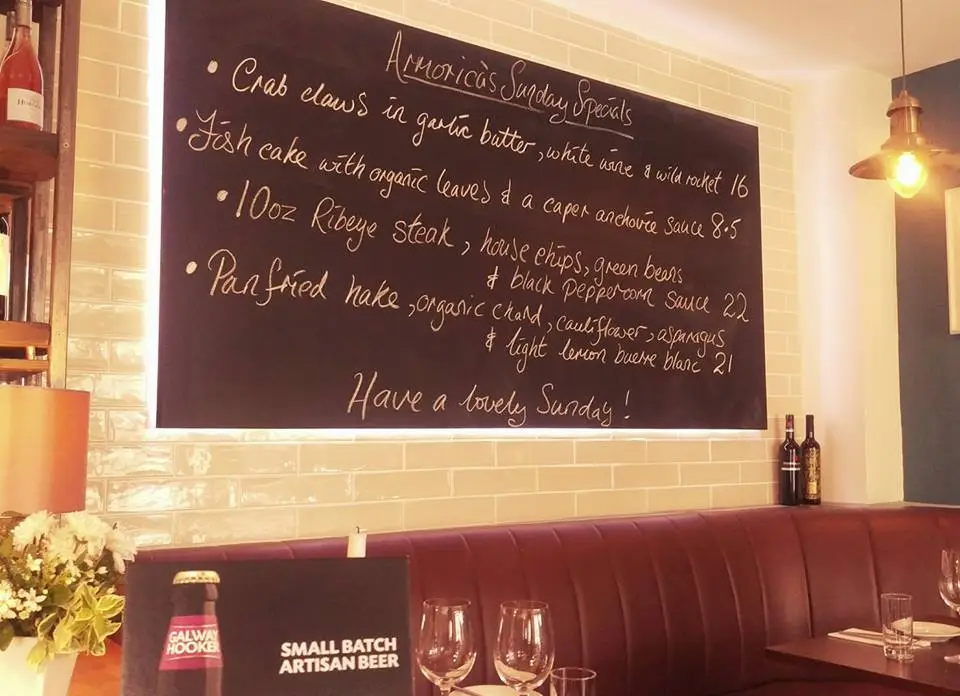 Armorica's Sunday Specials
• Crab claws in garlic butter, white wine & wild rocket 16
• Fish cake with organic leaves & a caper anchovie sauce 8.5
• 10oz Ribeye steak, house chips, green beans
& black peppercorn sauce 22
• Pan fried hake, organic chard, cauliflower, asparagus
& light lemon buerre blanc 21
Have a lovely Sunday!
GALWAY
HOOKER
SMALL BATCH
ARTISAN BEER